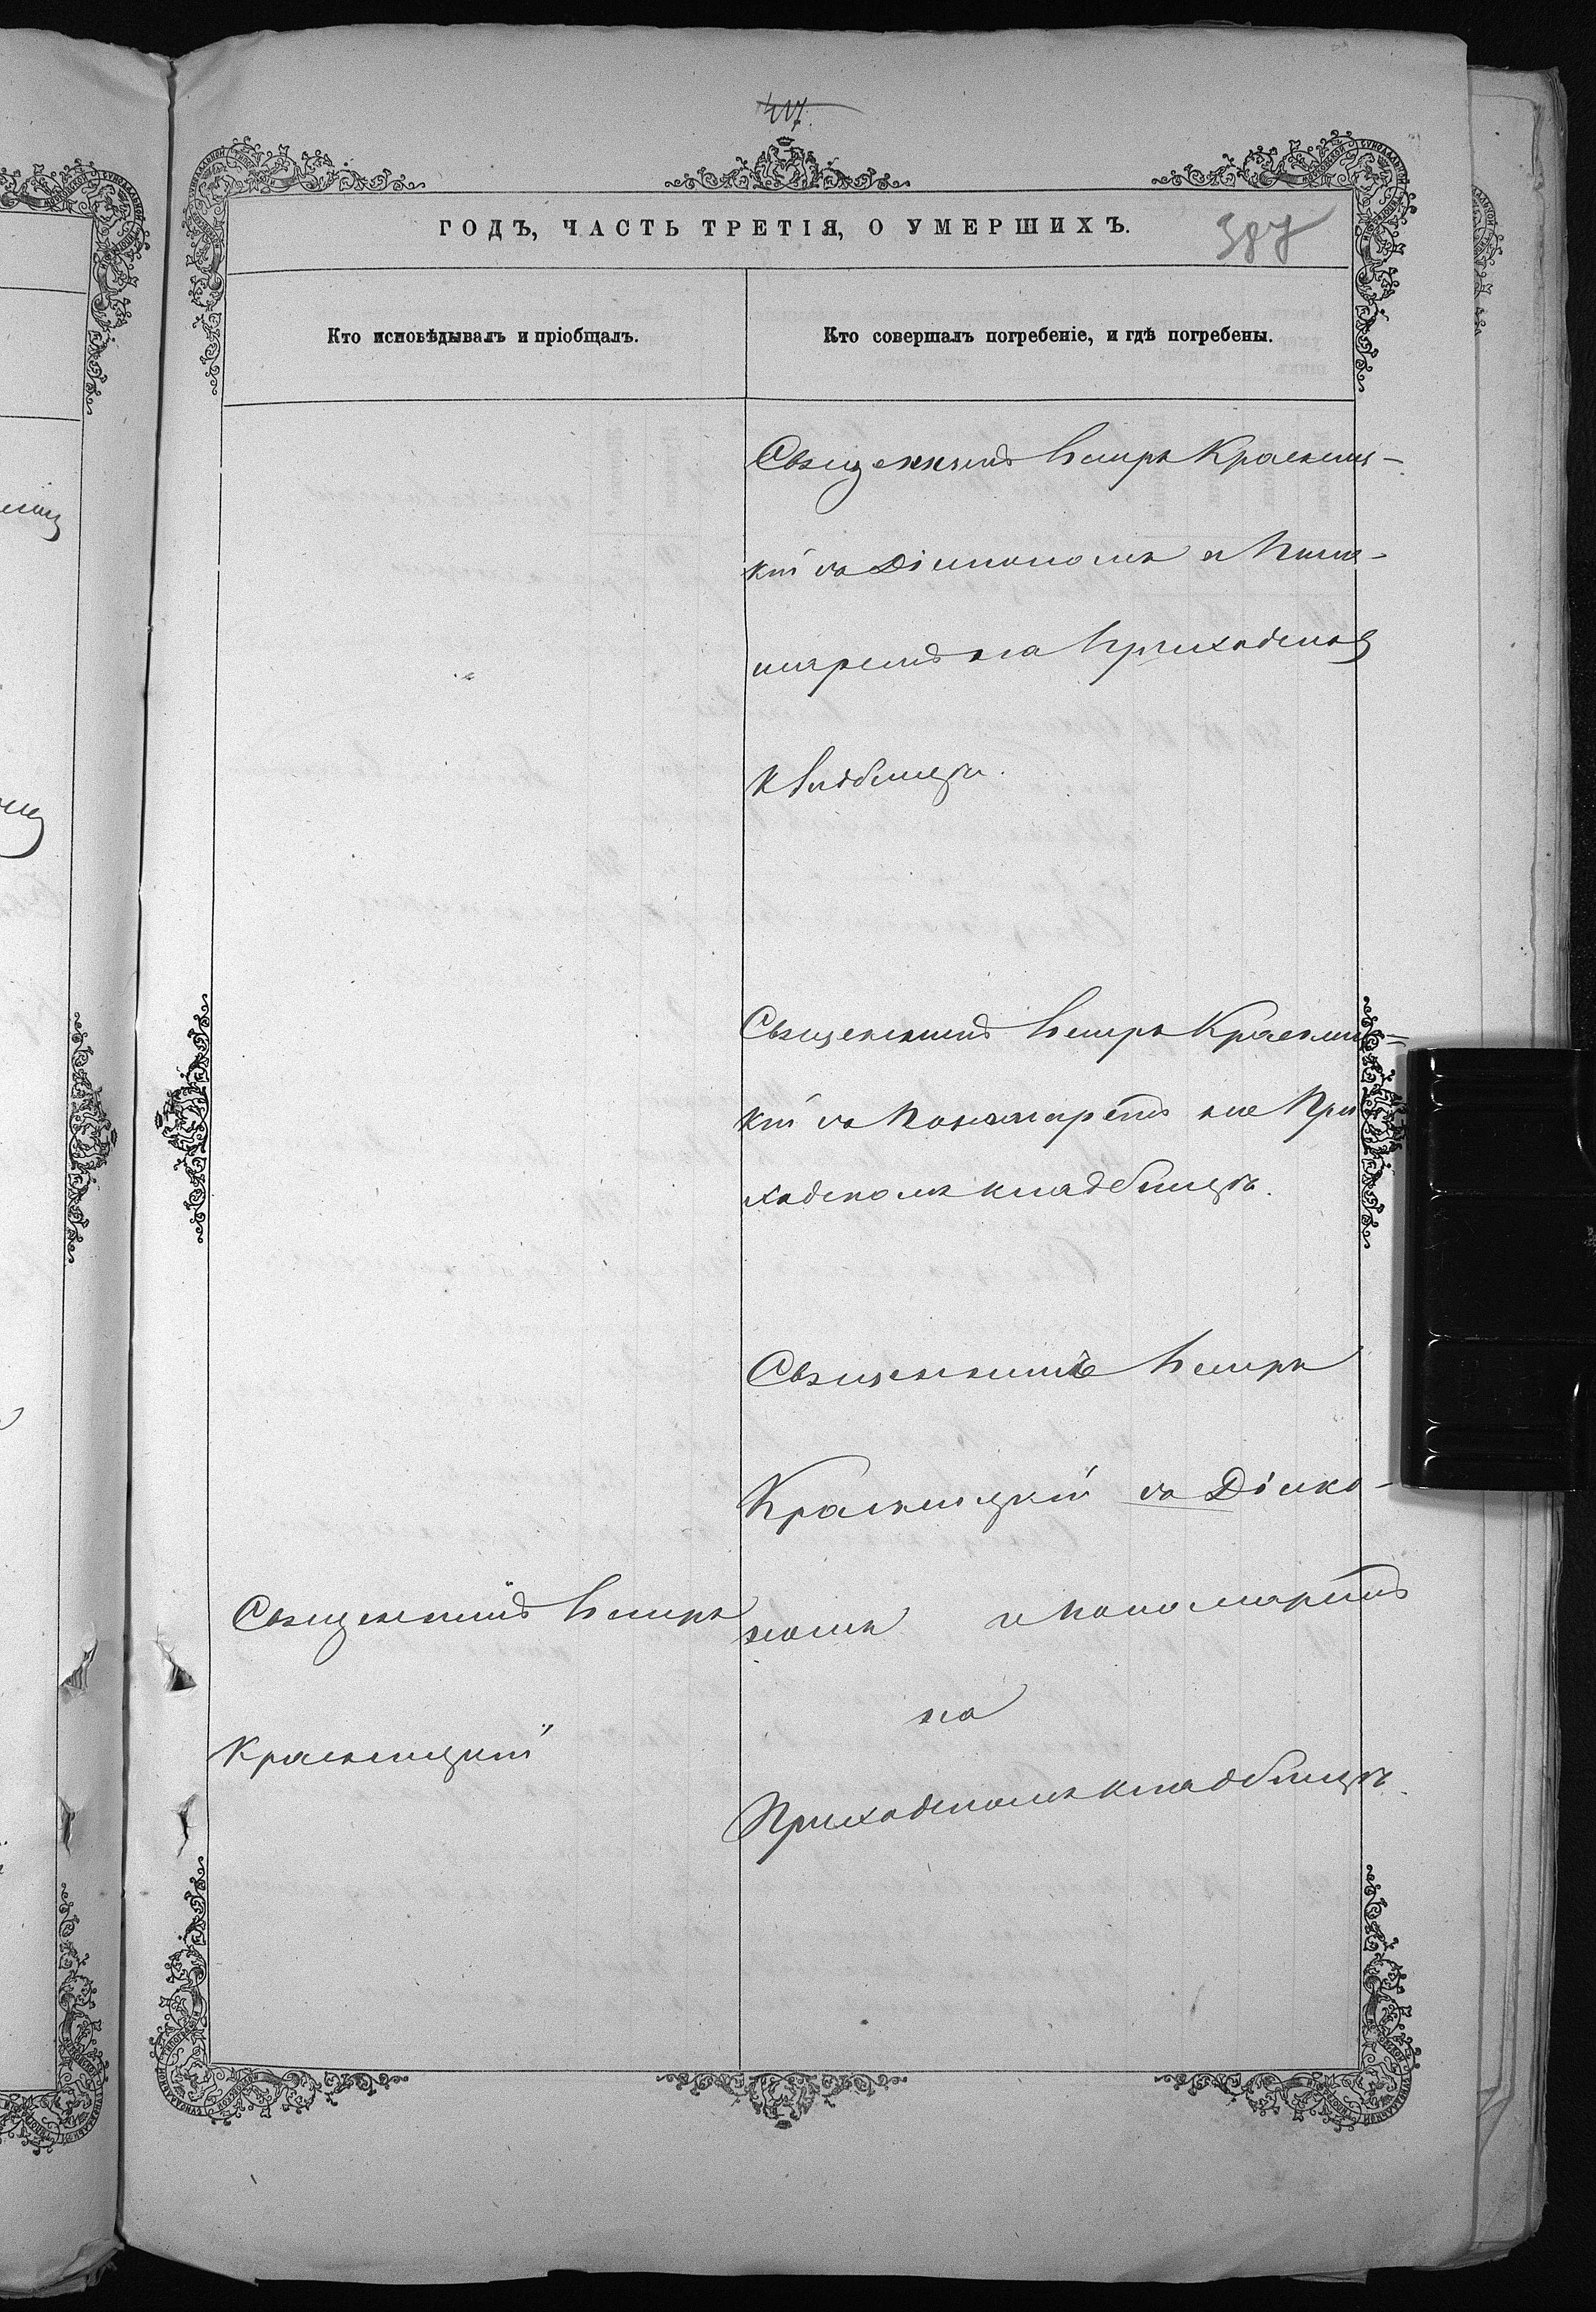 417.
ГОДЪ, ЧАСТЬ ТРЕТІЯ, О УМЕРШИХЪ.
387
Кто исповѣдывалъ и пріобщалъ.
Кто совершалъ погребеніе, и гдѣ погребены.
Священникъ Петръ Краснит-
кій съ Діакономъ и Поно-
маремъ на Приходскомъ
Кладбищѣ.
Священникъ Петръ Красниц=
кій съ Пономаремъ на При
ходскомъ кладбищѣ.
Священникъ Петръ
Красницкій съ Діако-
номъ и Пономаремъ
на
Приходскомъ кладбищѣ.
Священникъ Петръ
Красницкій